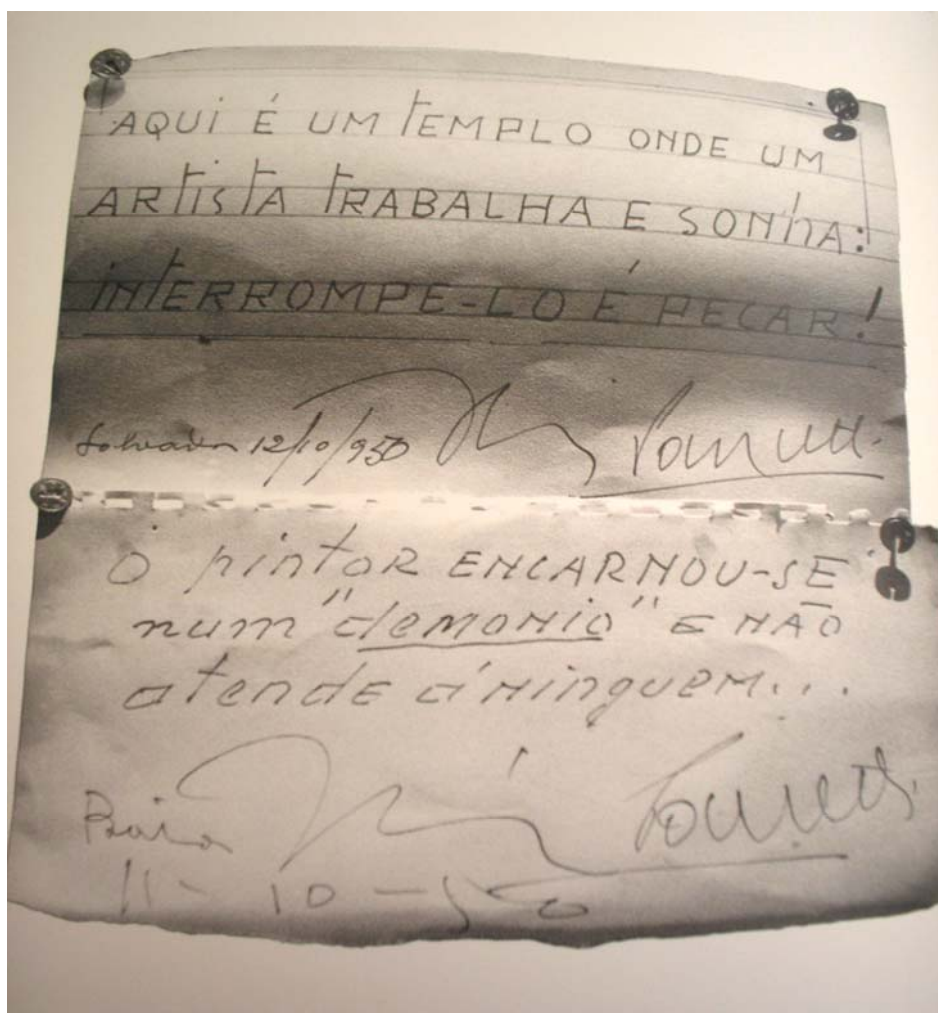 AQUI É UM TEMPLO ONDE UM
ARTISTA TRABALHA E SONHA:
INTERROMPE-LO É PECAR!
Salvador 12/10/950
O pintOR ENCARNOU-SE
num "demonio" E NÃO
atende á ninguem...
Baia
11-10-50